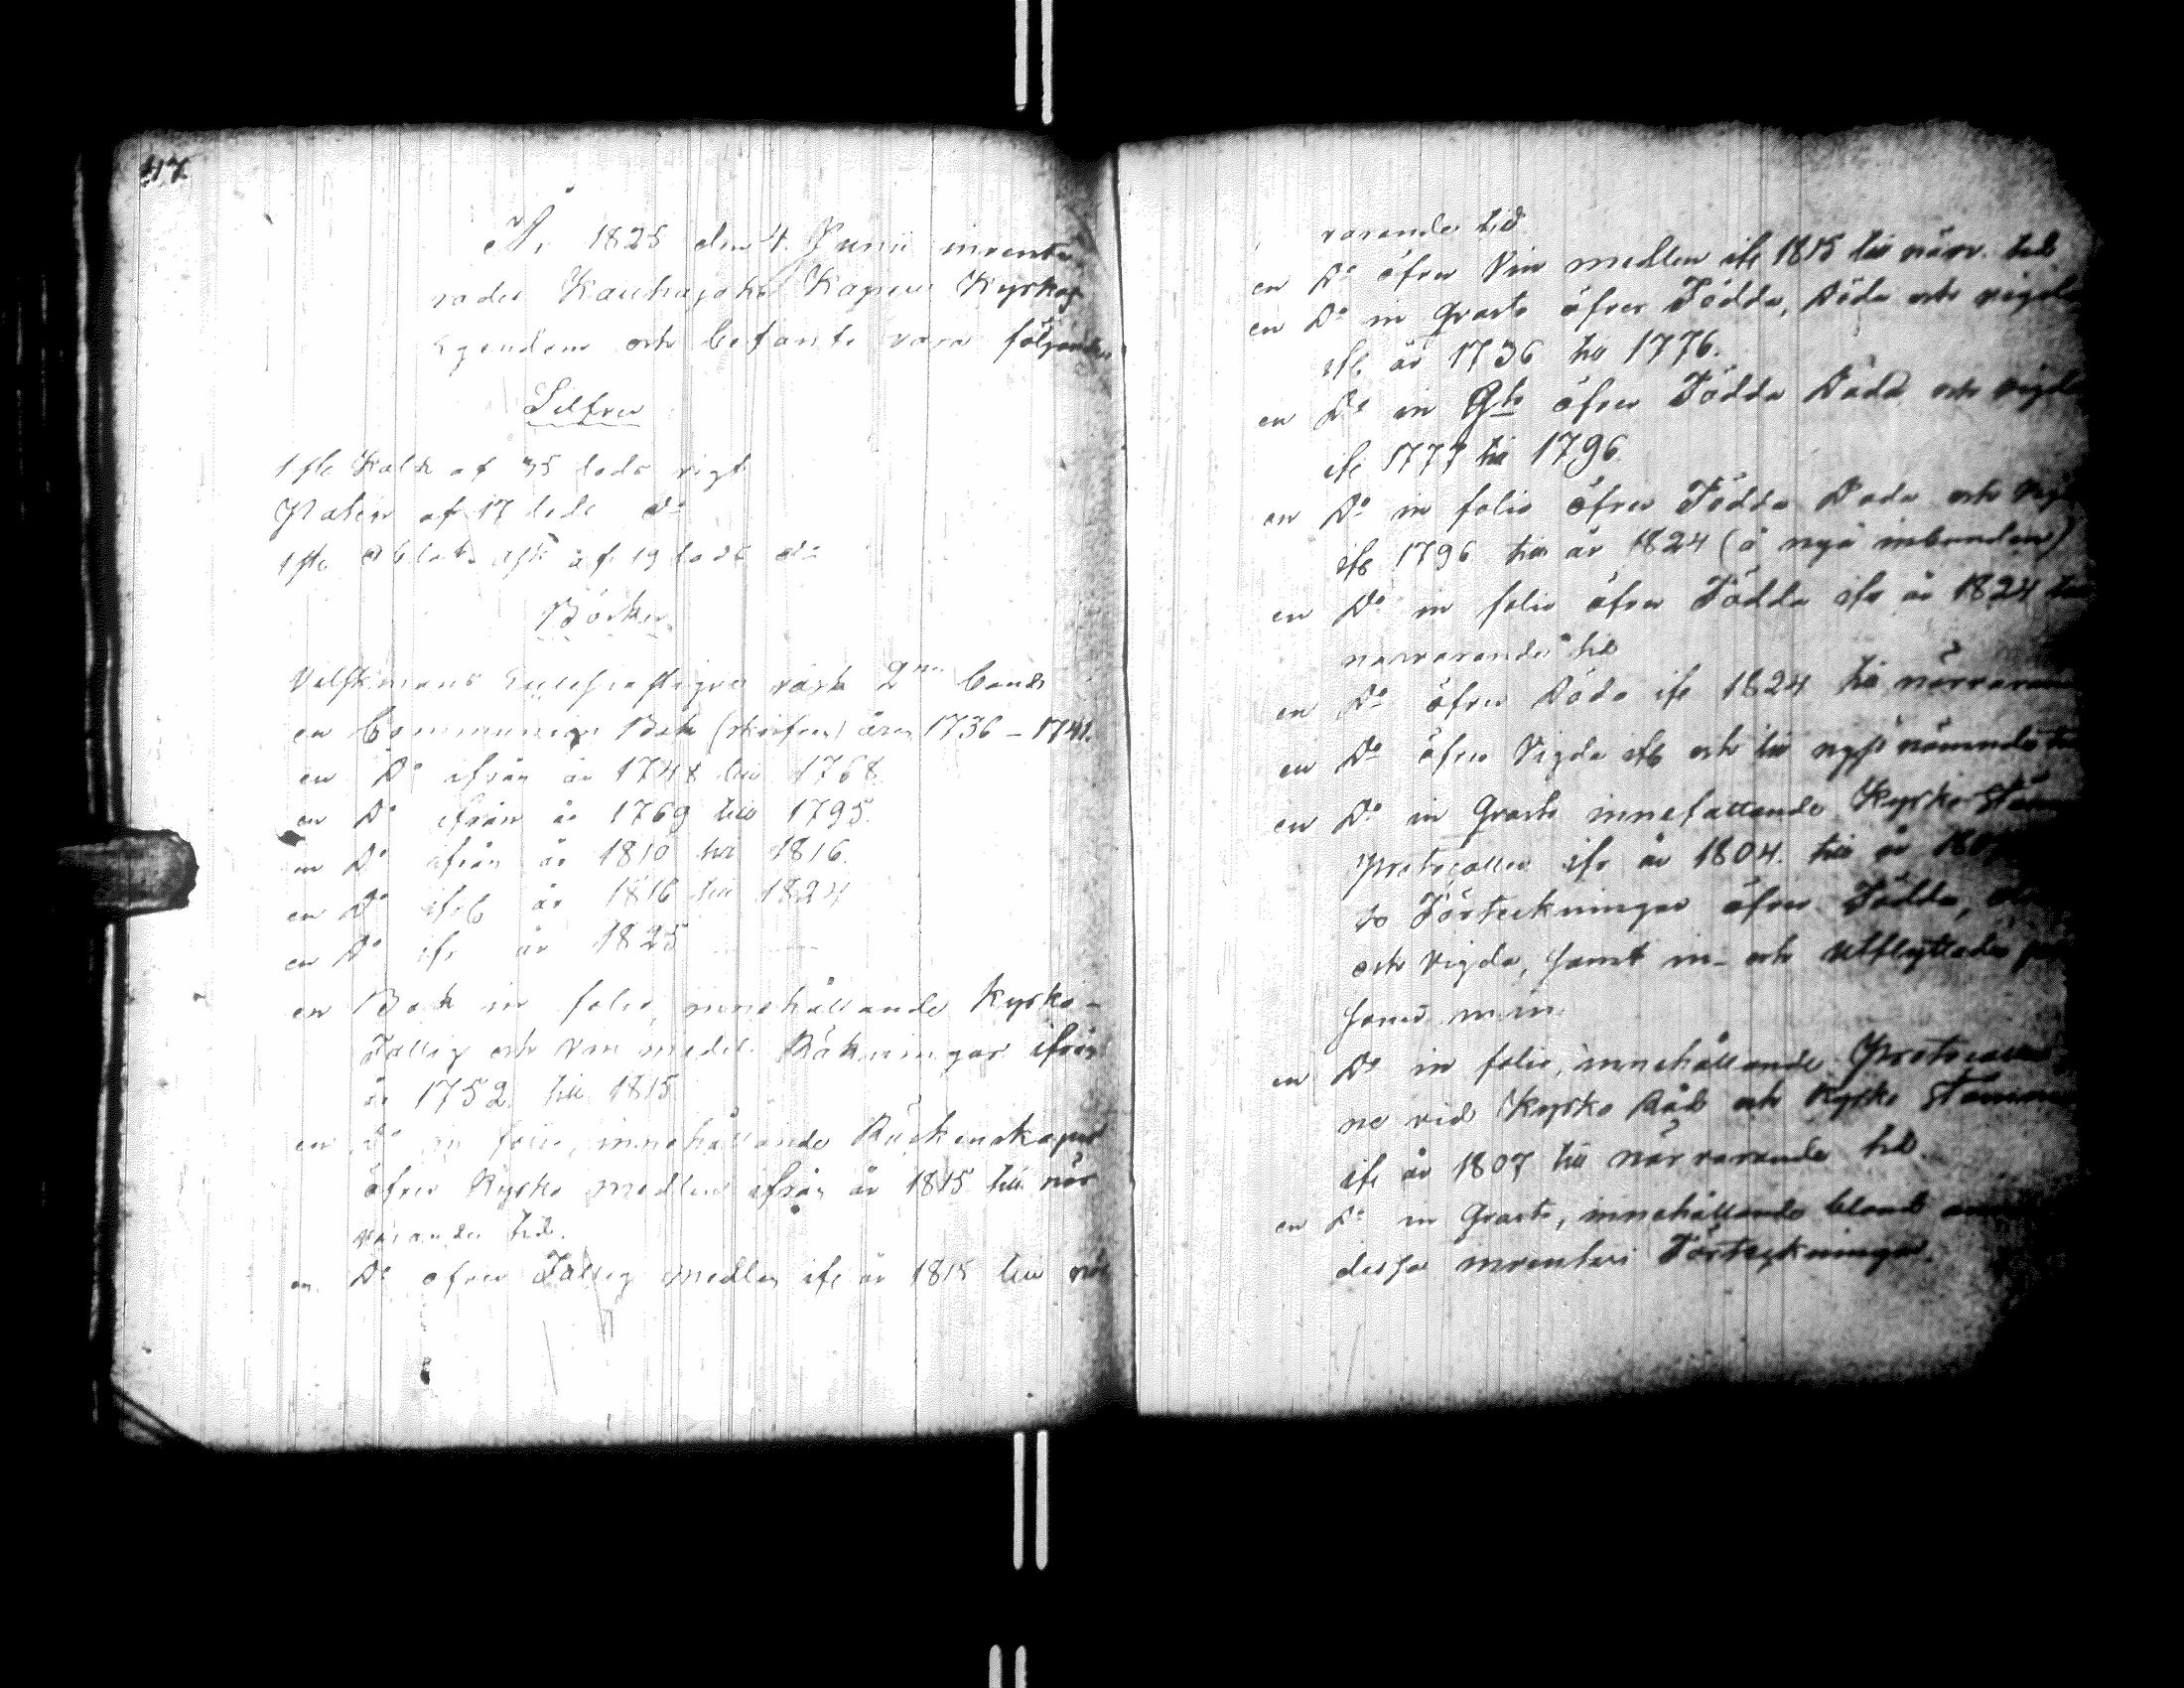 417
År 1825 den 4. Junii invente-
rades Kauhajoki Kapells Kyrkas
Egendom och befants vara följande
Silfver
1 st. Kalk af 35 lods vigt
Paten af 17 lods do
1 st. Oblat. ask af 19 lods do
Böcker
2ne band
en Communion Bok (skrifven) åren 1736 – 1741.
en Do ifrån år 1748 till 1768
en Do ifrån år 1769 till 1795.
en Do ifrån år 1810 till 1816.
en Do ifrån år 1816 till 1824
en Do ifr år 1825
en Bok in folio, innehållande Kyrko-
Fattig och Vin medel Räkningar ifrån
år 1752 till 1815
en Do in folio, innehållande Räkenskaper
öfver Kyrko medlen ifrån år 1815 till när
varande tid.
en Do öfver Fattig medlen ifr år 1815 till när
varande tid
en Do öfver Vin medlen ifr 1815 till närv. tid
en Do in Qvarto öfver Födda, Döda och vigda
ifr. år 1736 till 1776.
en Do in Qto öfver Födda Döda och vigda
ifr 1777 till 1796
en Do in folio öfver Födda Döda och Vigda
ifr 1796 till år 1824 (å nyå inbunden)
en Do in folio öfver Födda ifr år 1824 till
närvarande tid
en Do öfver Döda ifr 1824 till närvarande
en Do öfver Vigda ifr och till nyss nämnde
en Do in Qvarto innefattande Kyrko Stämmo
Protocoller ifr år 1804. till år
Förteckningar öfver Födda,
och Vigda, samt in- och utflyttade
m.m.
en Do in folio, innehållande Protocoller
ne vid Kyrko Råd och Kyrko Stämmor
ifr år 1807 till närvarande tid.
en Do in Qvarto, innehållande bland
dessa inventarii Förteckningar.